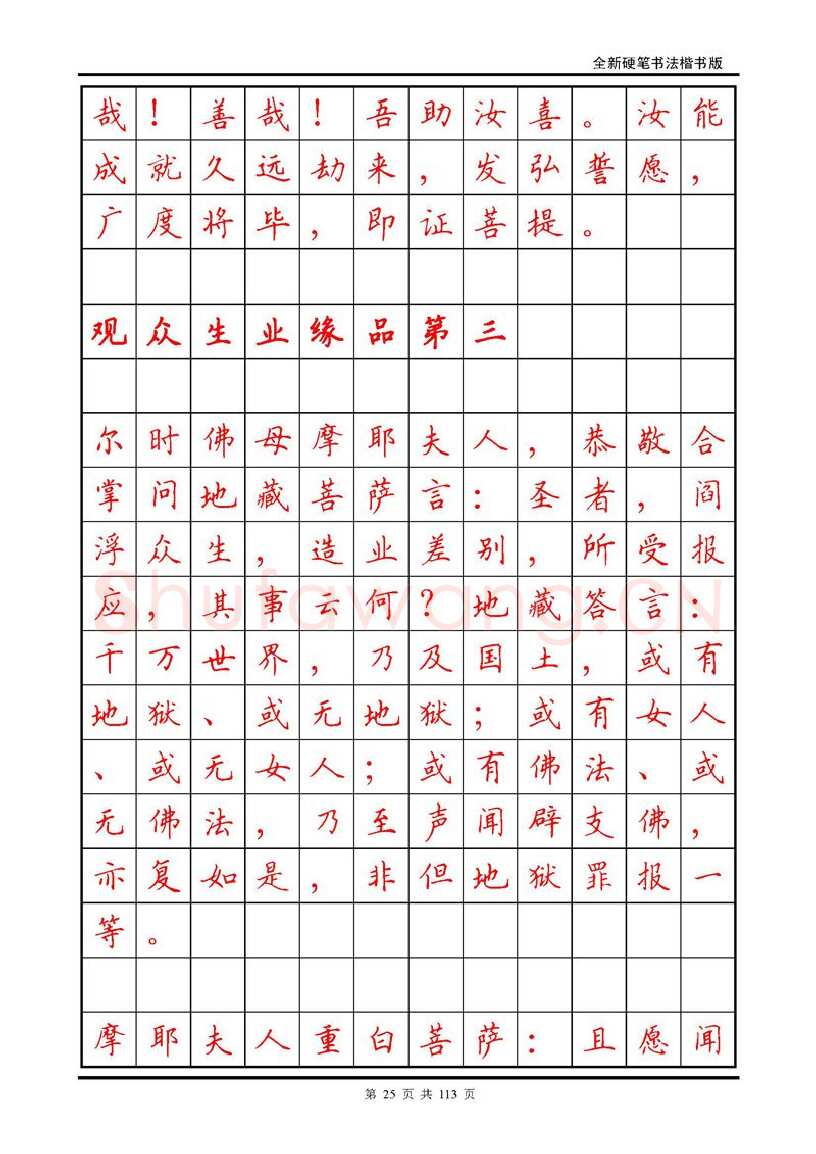 全新硬笔书法楷书版
哉！善哉！吾助汝喜。汝能
成就久远劫来，发弘誓愿，
广度将毕，即证菩提。
观众生业缘品第三
尔时佛母摩耶夫人，恭敬合
掌问地藏菩萨言：圣者，阎
浮众生，造业差别，所受报
应，其事云何？地藏答言：
千万世界，乃及国土，或有
地狱、或无地狱；或有女人
、或无女人；或有佛法、或
无佛法，乃至声闻辟支佛，
亦复如是，非但地狱罪报一
等。
摩耶夫人重白菩萨：且愿闻
Shufawang.CN
第 25 页 共 113 页